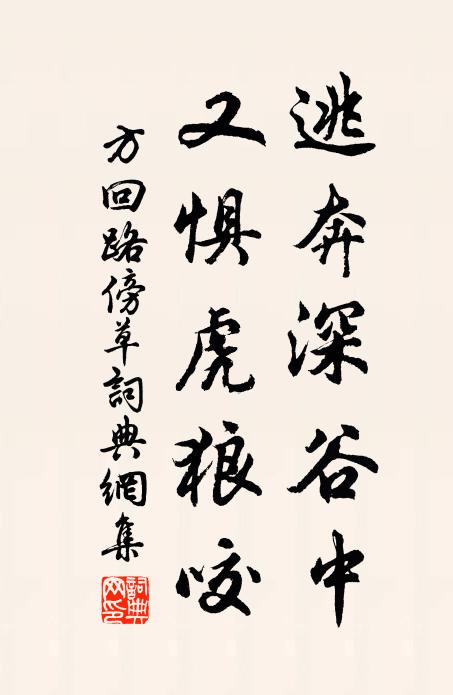 逃奔深谷中
又惧虎狼咬
方回路傍草詞典網集
詞典
网印